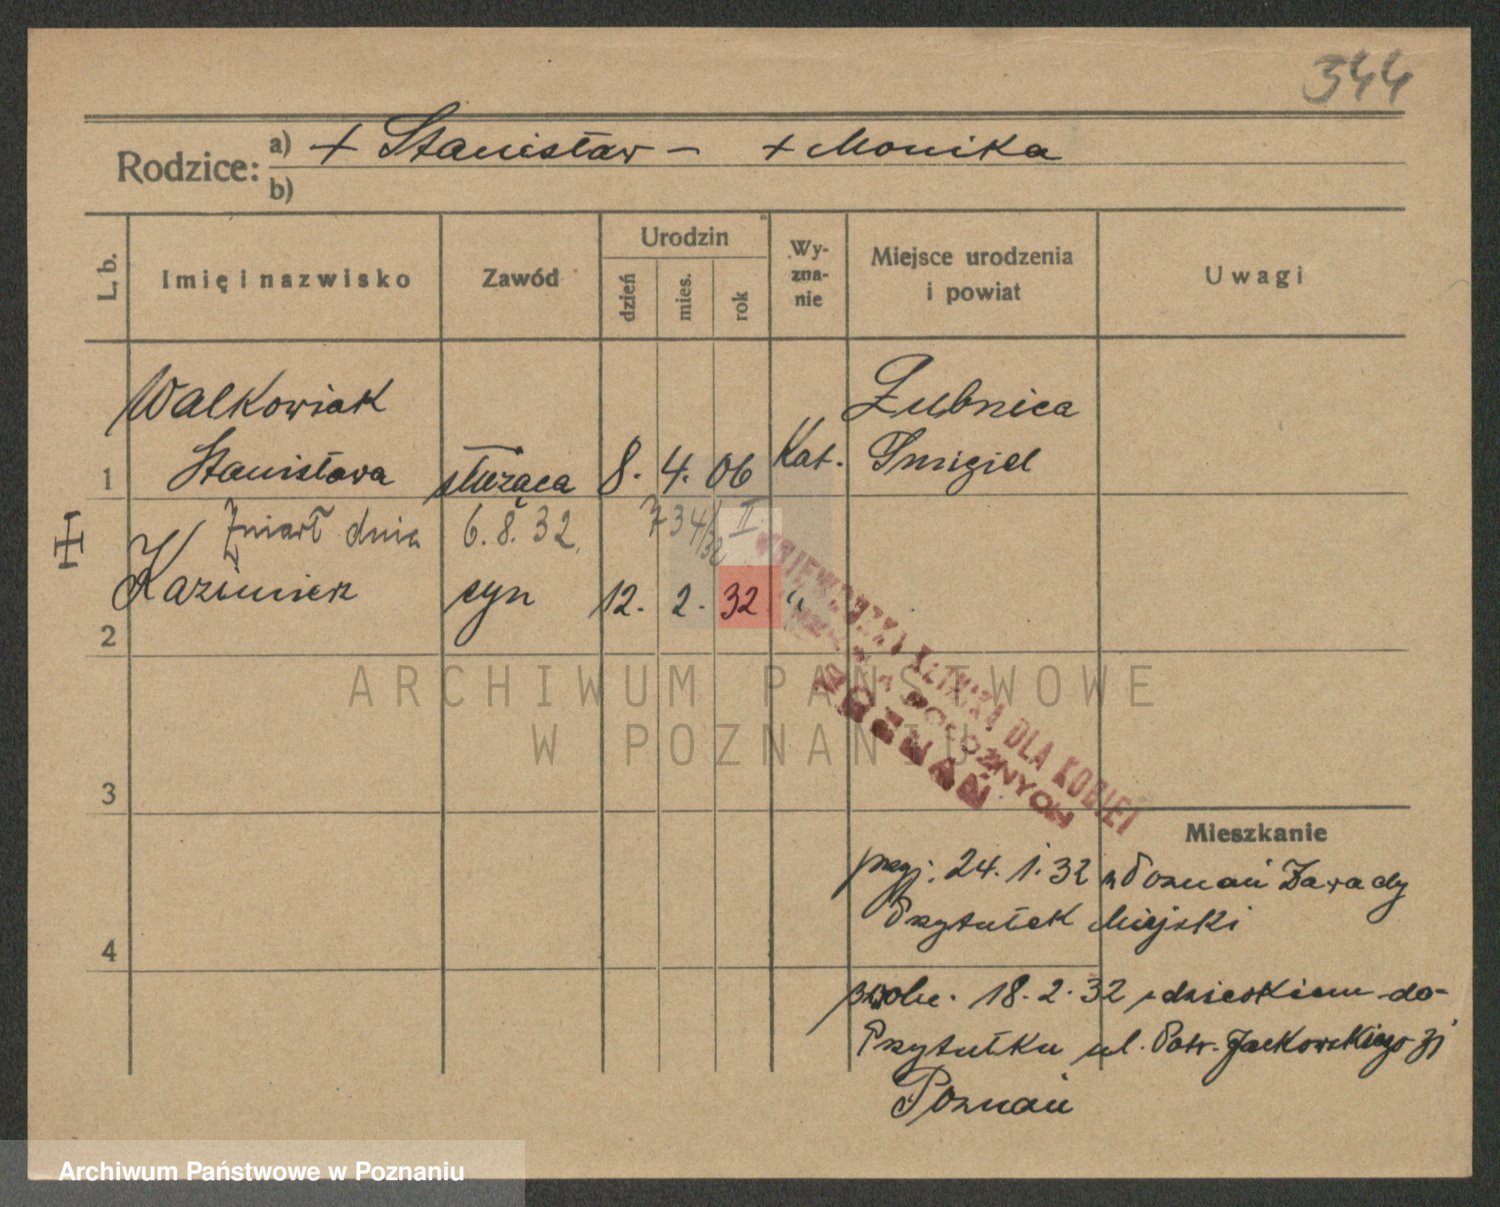 344
Rodzice: a) + Stanisław – + Monika
b)
L. b.
Imię i nazwisko
Zawód
Urodzin
dzień
mies.
rok
Wy-
zna-
nie
Miejsce urodzenia
i powiat
Uwagi
Walkowiak
Żubnica
1 Stanisława służąca 8. 4. 06 Kat. Śmigiel
Zmarł dnia 6.8.32. 734/32 II
2 Kazimierz syn 12. 2. 32 "
WOJEWÓDZKA KLINIKA DLA KOBIET
POŁOŻNYCH
POZNAŃ
ARCHIWUM PAŃSTWOWE
W POZNANIU
3
Mieszkanie
przyj. 24. 1. 32 z Poznań Zawady
Przytułek Miejski
4
zwoln. 18. 2. 32 z dzieckiem do-
Przytułku ul. Patr. Jackowskiego
Poznań
Archiwum Państwowe w Poznaniu